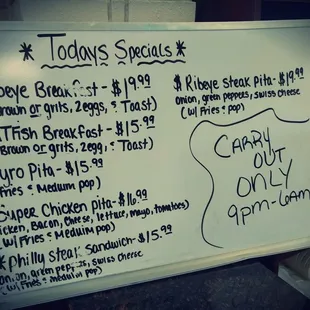 * Todays Specials *
beye Breakfast - $19.99
Brown or grits, 2eggs, & Toast)
tfish Breakfast - $15.99
Brown or grits, 2eggs, & Toast)
yro Pita - $15.99
Fries & Meduim pop)
Super Chicken Pita - $16.99
icken, Bacon, Cheese, lettuce, mayo, tomatoes)
(w/ Fries & Meduim pop)
* Philly Steak Sandwich - $15.99
onion, green peppers, Swiss Cheese
(w/ Fries & Meduim pop)
* Ribeye Steak Pita - $19.99
onion, green peppers, Swiss Cheese
(w/ Fries & pop)
CARRY
OUT
ONLY
9pm-6am